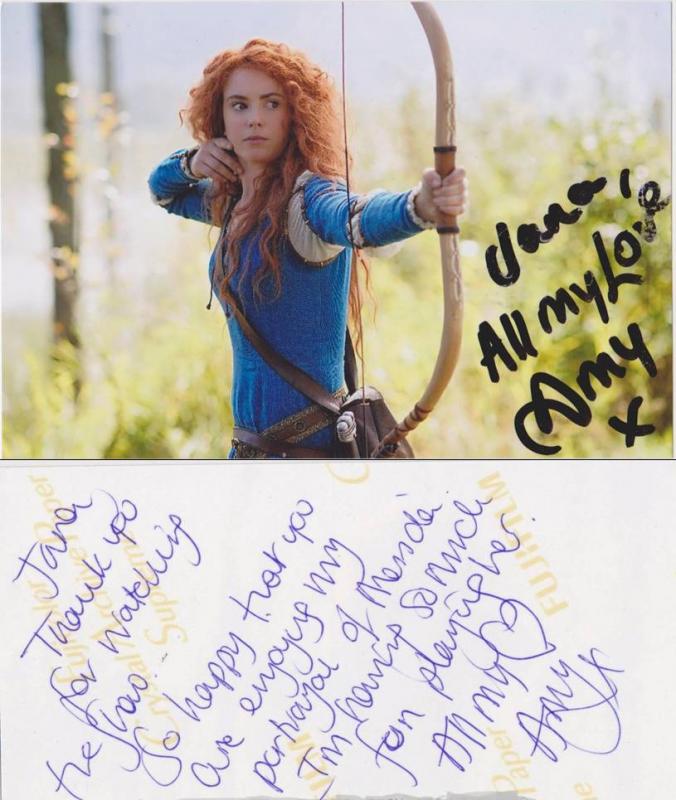 Jana,
All my Love
Amy
x
Jana
Thank you
for watching
the show.
So happy that you
are enjoying my
portrayal of Merida.
I'm having so much
fun playing her.
All my ♡
Amy x
Fujicolor
Crystal Archive Paper
Supreme
FUJIFILM